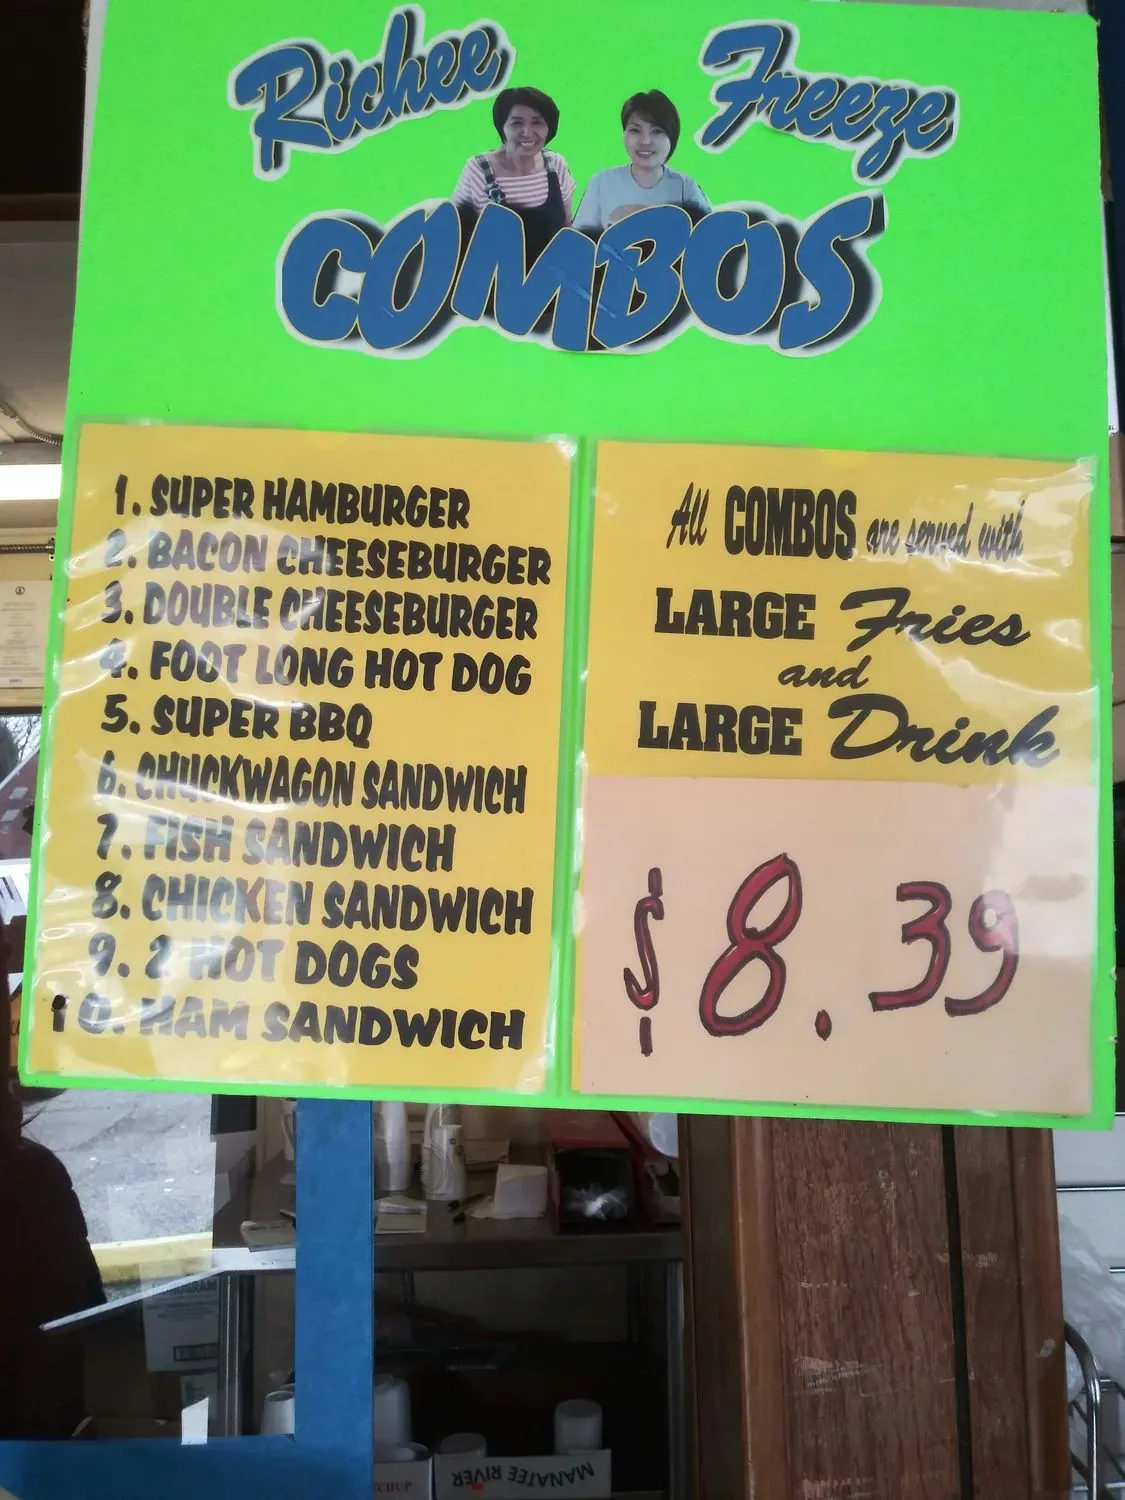 Richee Freeze
COMBOS
1. SUPER HAMBURGER
2. BACON CHEESEBURGER
3. DOUBLE CHEESEBURGER
4. FOOT LONG HOT DOG
5. SUPER BBQ
6. CHUCKWAGON SANDWICH
7. FISH SANDWICH
8. CHICKEN SANDWICH
9. 2 HOT DOGS
10. HAM SANDWICH
All COMBOS are served with
LARGE Fries
and
LARGE Drink
$8.39
MANATEE RIVER